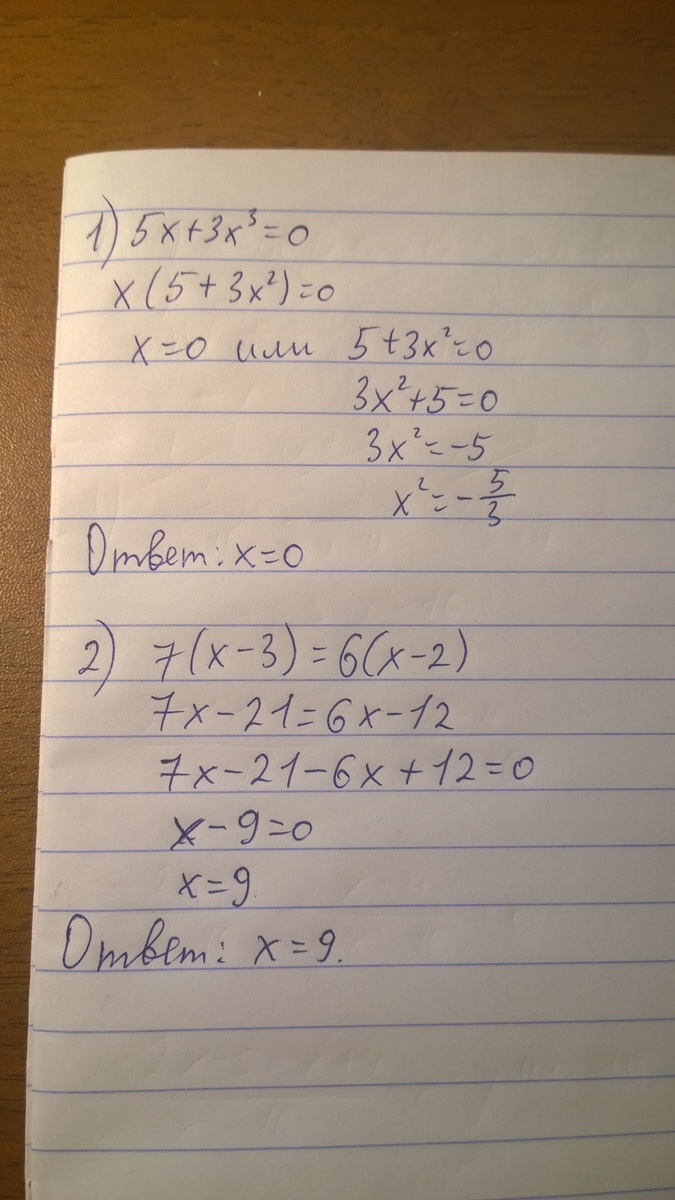 1) 5x+3x³=0
x(5+3x²)=0
x=0 или 5+3x²=0
3x²+5=0
3x²=-5
x²=-5/3
Ответ: x=0
2) 7(x-3)=6(x-2)
7x-21=6x-12
7x-21-6x+12=0
x-9=0
x=9.
Ответ: x=9.